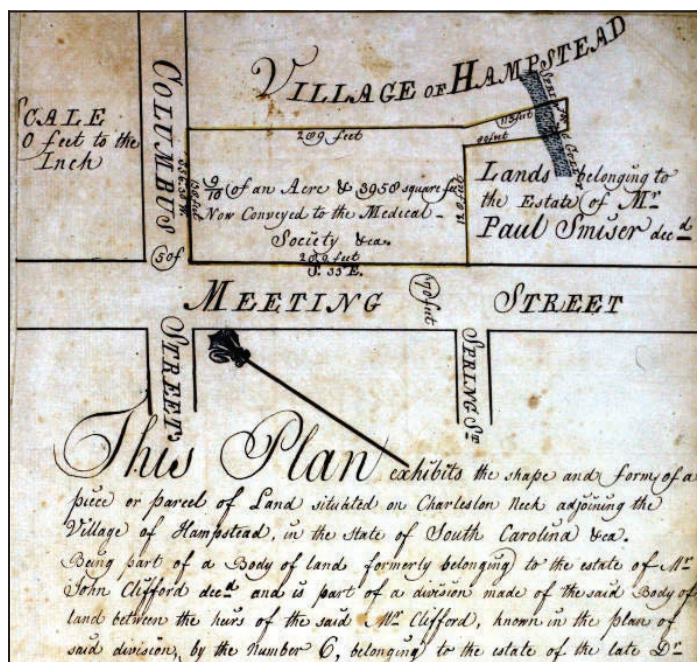 VILLAGE OF HAMPSTEAD
COLUMBUS
STREET
SCALE
0 feet to the
Inch
209 feet
113 feet
90 feet
9/10 of an Acre & 3958 square feet
Now Conveyed to the Medical -
Society &ca.
209 feet
S. 35 E.
50 f
Lands belonging to
the Estate of Mr
Paul Smiser decd
MEETING STREET
70 feet
SPRING St
This Plan exhibits the shape and form of a
piece or parcel of Land situated on Charleston Neck adjoining the
Village of Hampstead, in the State of South Carolina &ca.
Being part of a Body of land formerly belonging to the estate of Mr
John Clifford decd and is part of a division made of the said Body of
land between the heirs of the said Mr Clifford, known in the plan of
said division, by the Number 6, belonging to the estate of the late Dr